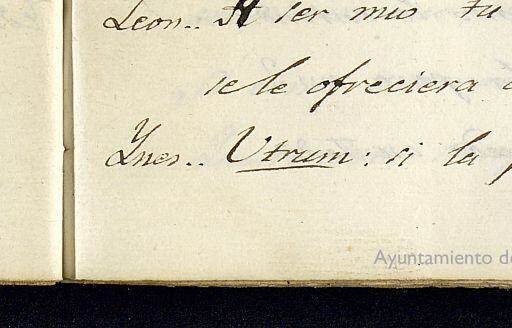 Leon.. A ser mio tu
se le ofreciera
Ynes.. Utrum: si la
Ayuntamiento de